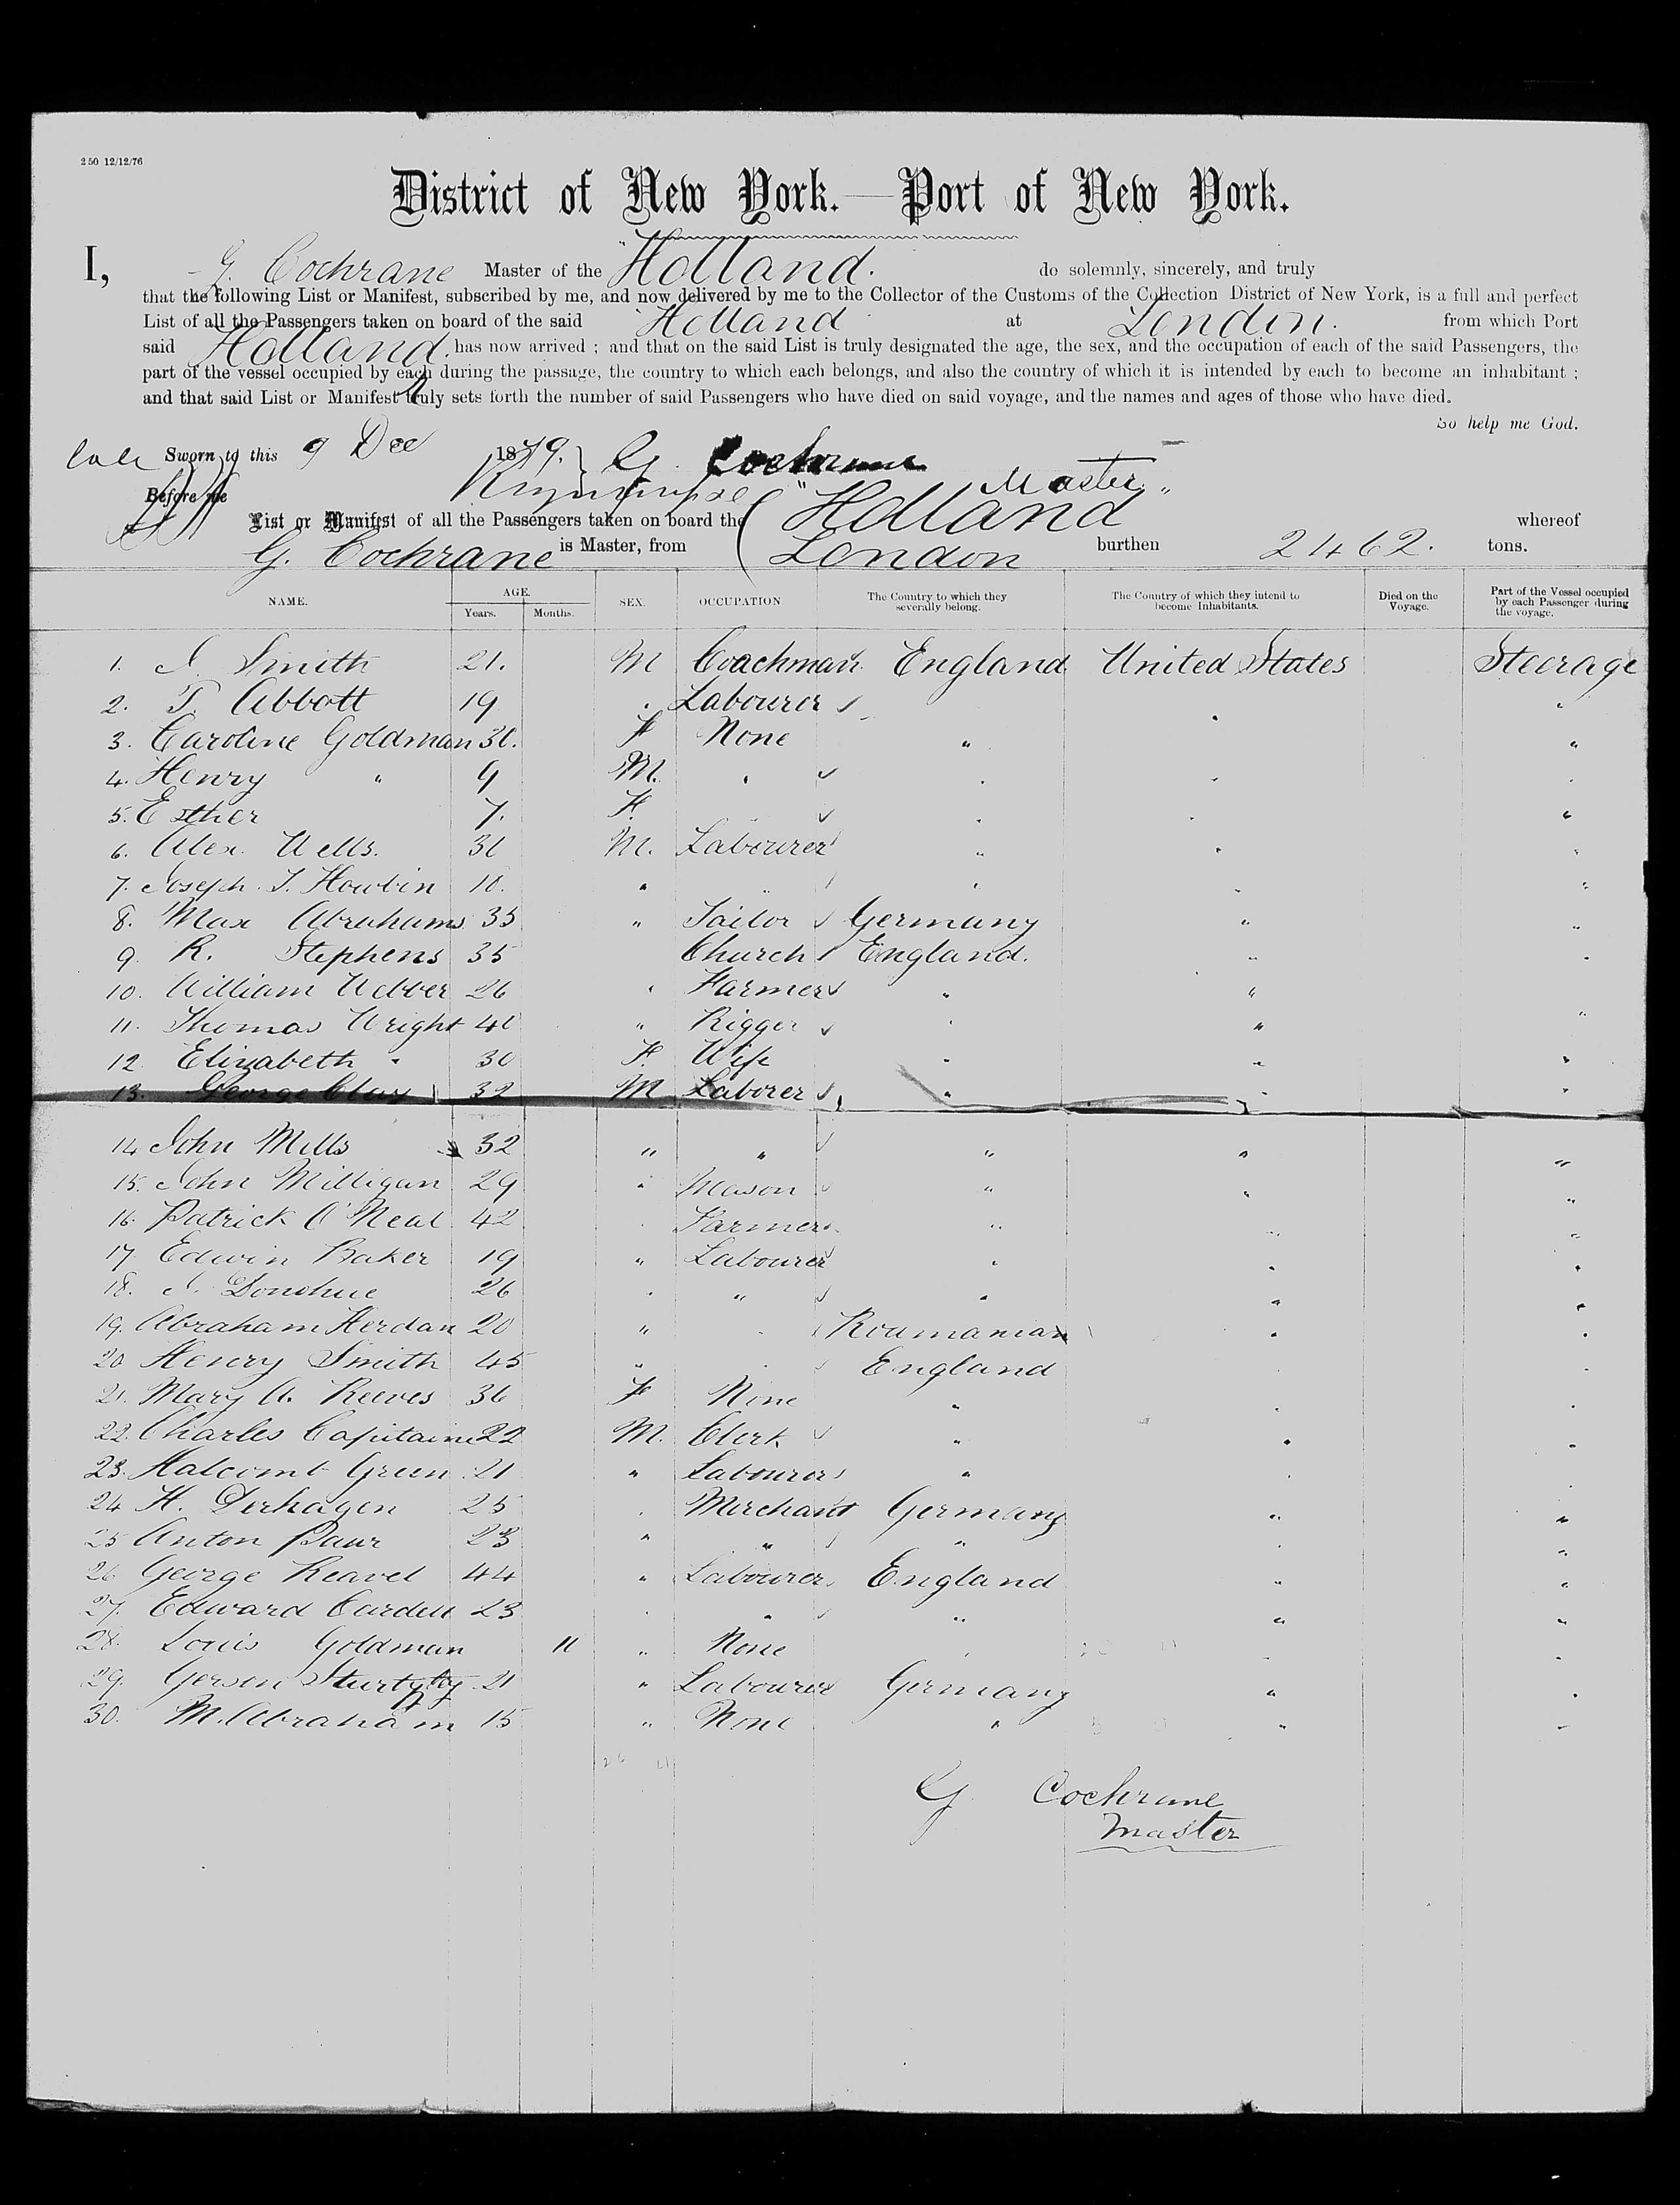 250 12/12/76
District of New York.—Port of New York.
I, G. Cochrane Master of the "Holland. do solemnly, sincerely, and truly
that the following List or Manifest, subscribed by me, and now delivered by me to the Collector of the Customs of the Collection District of New York, is a full and perfect
List of all the Passengers taken on board of the said Holland at London. from which Port
said Holland. has now arrived ; and that on the said List is truly designated the age, the sex, and the occupation of each of the said Passengers, the
part of the vessel occupied by each during the passage, the country to which each belongs, and also the country of which it is intended by each to become an inhabitant ;
and that said List or Manifest truly sets forth the number of said Passengers who have died on said voyage, and the names and ages of those who have died.
So help me God.
Sworn to this 9 Dec 1879. G. Cochrane
Before me Master
List or Manifest of all the Passengers taken on board the "Holland" whereof
G. Cochrane is Master, from London burthen 2462. tons.
NAME. AGE. SEX. OCCUPATION The Country to which they severally belong. The Country of which they intend to become Inhabitants. Died on the Voyage. Part of the Vessel occupied by each Passenger during the voyage.
Years. Months.
1. J. Smith 21. M Coachman England United States Steerage
2. T. Abbott 19 Labourer
3. Caroline Goldman 30. F None " "
4. Henry " 9 M. "
5. Esther 7. F.
6. Alex. Wells. 30 M. Labourer "
7. Joseph. T. 18. "
8. Max Abrahams 35 " Tailor Germany " "
9. R. Stephens 35 Church England. "
10. William Webber 26 " Farmer " "
11. Thomas Wright 40 " Rigger " "
12. Elizabeth " 30 F. Wife " " "
13. George Clay 32 M Laborer " " "
14 John Mills 32 " " " " "
15. John Milligan 29 " Mason " " "
16. Patrick O'Neal 42 Farmer " " "
17. Edwin Baker 19 " Labourer " " "
18. J. Donohue 26 " " " " "
19. Abraham Herdan 20 " Roumanian " "
20 Henry Smith 45 " England
21. Mary A. Reeves 36 F None "
22. Charles Capitaine 22 M. Clerk " " "
23. Halcomb Green 21 " Labourer "
24 H. Derhagen 25 Merchant Germany " "
25 Anton Paur 23 " " " "
26 George Reavel 44 " Labourer England " "
27. Edward Cardell 23 " " " "
28. Louis Goldman 11 " None
29. Gerson 21 " Labourer Germany " "
30. M. Abraham 15 " None " " "
G. Cochrane
Master